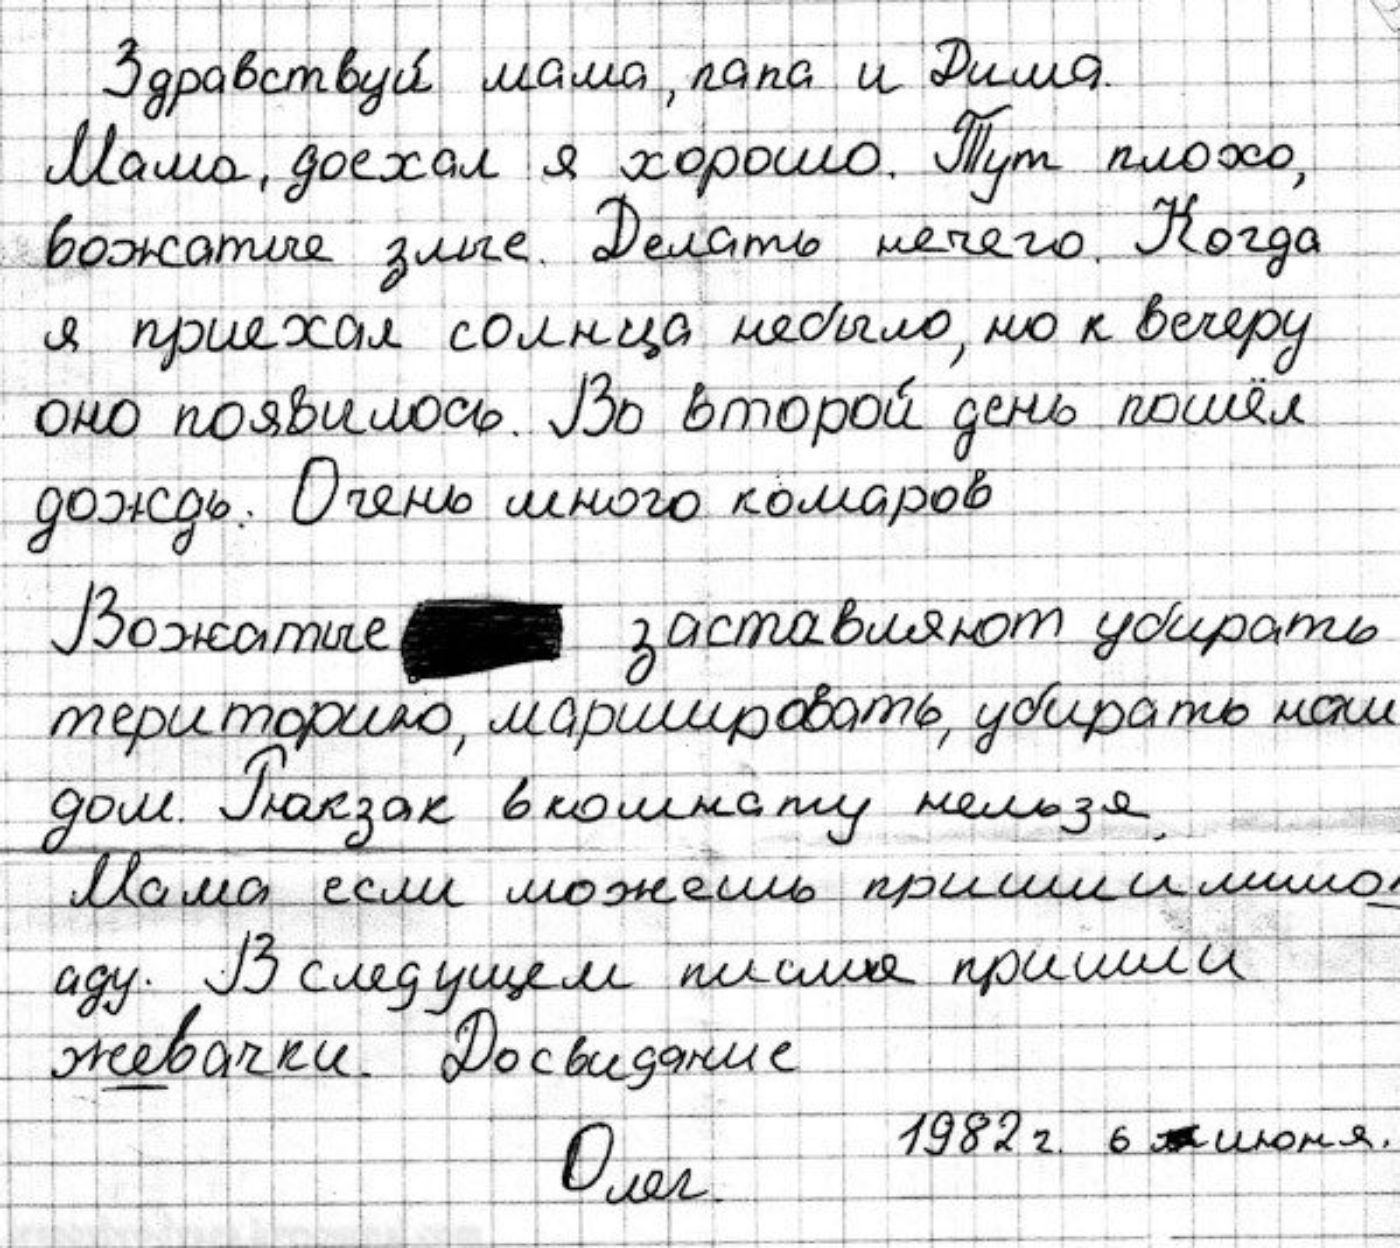 Здравствуй мама, папа и Дима.
Мама, доехал я хорошо. Тут плохо,
вожатые злые. Делать нечего. Когда
я приехал солнца небыло, но к вечеру
оно появилось. Во второй день пошёл
дождь. Очень много комаров
Вожатые заставляют убирать
територию, маршировать, убирать наш
дом. Рюкзак в комнату нельзя.
Мама если можешь пришли лимон
аду. В следущем писме пришли
жевачки. Досвидание
1982 г. 6 июня.
Олег.